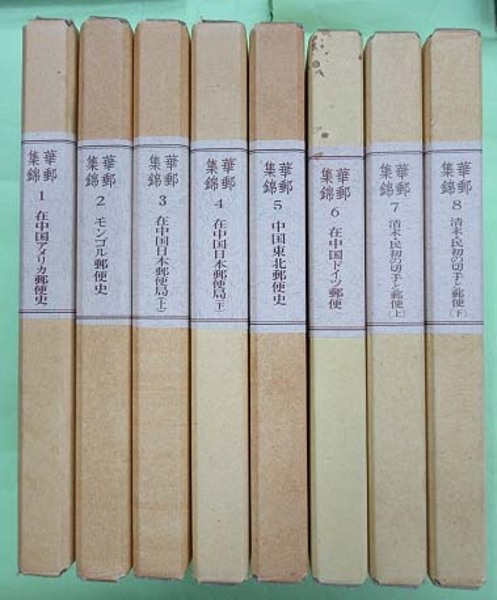 華郵
集錦
1 在中国アメリカ郵便史
華郵
集錦
2 モンゴル郵便史
華郵
集錦
3 在中国日本郵便局(上)
華郵
集錦
4 在中国日本郵便局(下)
華郵
集錦
5 中国東北郵便史
華郵
集錦
6 在中国ドイツ郵便
華郵
集錦
7 清末・民初の切手と郵便(上)
華郵
集錦
8 清末・民初の切手と郵便(下)